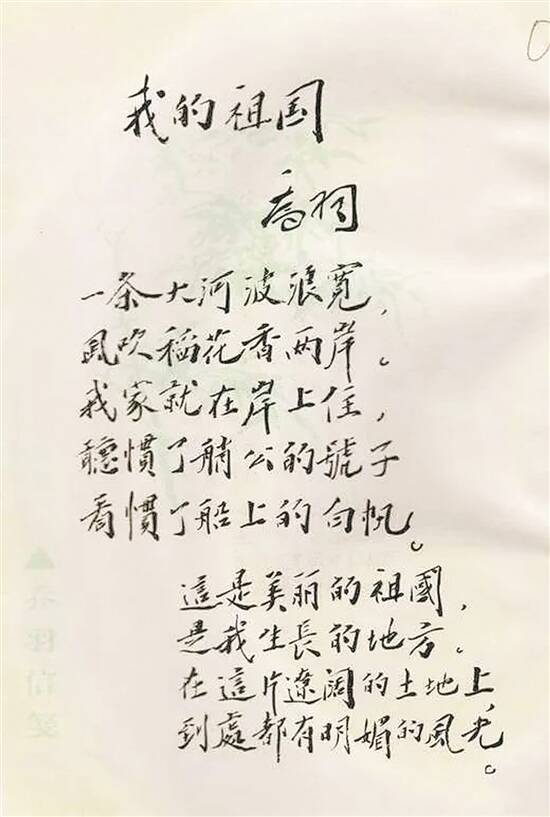 我的祖国
乔羽
一条大河波浪寬,
風吹稻花香两岸。
我家就在岸上住,
聽慣了艄公的號子
看慣了船上的白帆。
這是美丽的祖國,
是我生長的地方。
在這片遼阔的土地上,
到處都有明媚的風光。